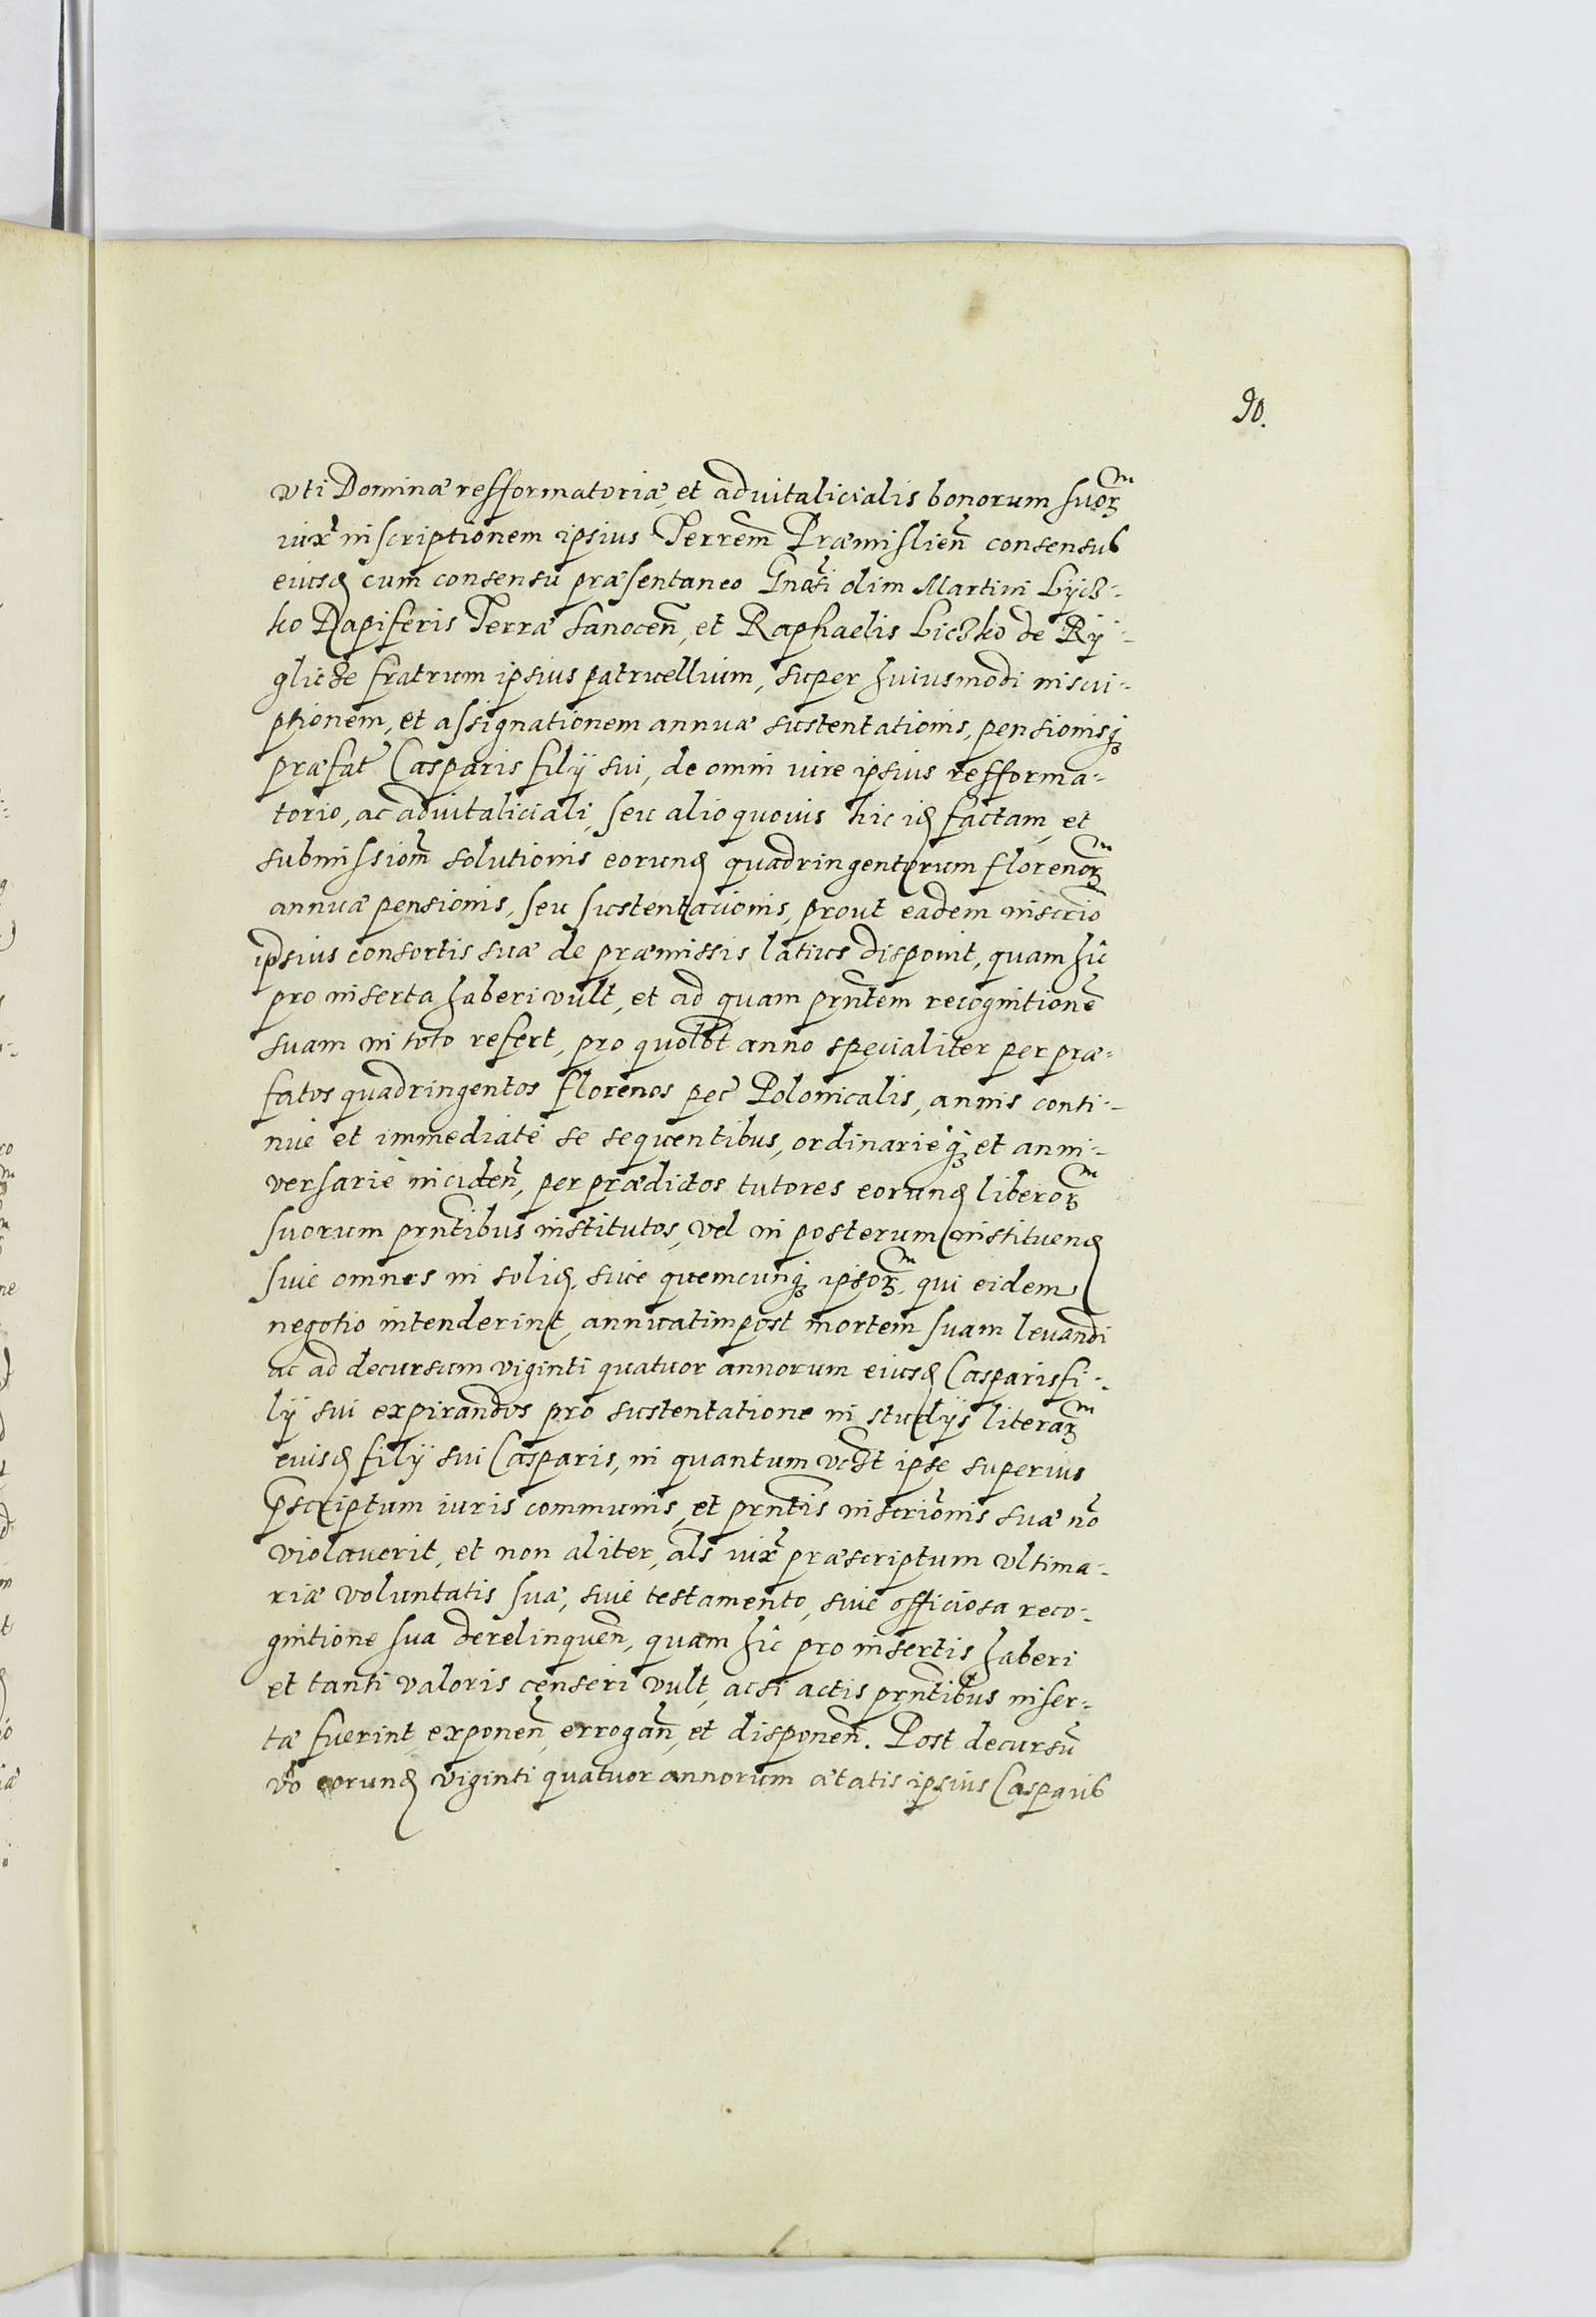 90.
vti Dominæ refformatoriæ, et aduitalicialis bonorum suoꝝ
iuxͣ inscriptionem ipsius Terrem̃ Præmislien̄ consensus
eiusꝺ cum consensu præsentaneo Gnãsi olim Martini Lÿcz-
ko Dapiferis Terræ Sanocen̄, et Raphaelis Liczko de Rÿ-
glicze fratrum ipsius patruellium, super huiusmodi inscri-
ptionem, et assignationem annuæ sustentationis, pensionisqꝫ
præfat̃ Casparis filÿ sui, de omni iure ipsius refforma-
torio, ac aduitaliciali, seu alio quouis hic iꝺ factam, et
submissiom̃ solutionis eorunꝺ quadringentorum florenoꝝ
annuæ pensionis, seu sustentacionis, prout eadem inscrio
ipsius consortis suæ de præmissis latius disponit, quam hic
pro inserta haberi vult, et ad quam prñtem recognitionẽ
suam in toto refert, pro quolbt anno specialiter per præ-
fatos quadringentos florenos pec̃ Polonicalis, annis conti-
nue et immediate se sequentibus, ordinarieqꝫ et anni-
versarie inciden̄, per prædictos tutores eorunꝺ liberoꝝ
suorum prñtibus institutos, vel in posterum instituenꝺ
siue omnes in soliꝺ, siue quemcunqꝫ ipsoꝝ, qui eidem
negotio intenderint, annuatim post mortem suam leuandi
ac ad decursum viginti quatuor annorum eiusꝺ Casparis fi-
lÿ sui expirandos pro sustentatione in studÿs literaꝝ
euisꝺ filÿ sui Casparis, in quantum vcdt ipse superius
p̃scriptum iuris communis, et prñtis inscriõnis suæ nõ
violauerit, et non aliter, als iuxͣ præscriptum vltima-
riæ voluntatis suæ, siue testamento, siue officiosa reco-
gnitione sua derelinquen̄, quam hic pro insertis haberi
et tanti valoris censeri vult, acsi actis prñtibus inser-
tæ fuerint, exponen̄, errogan̄, et disponen̄. Post decursũ
võ eorunꝺ viginti quatuor annorum ætatis ipsius Casparis